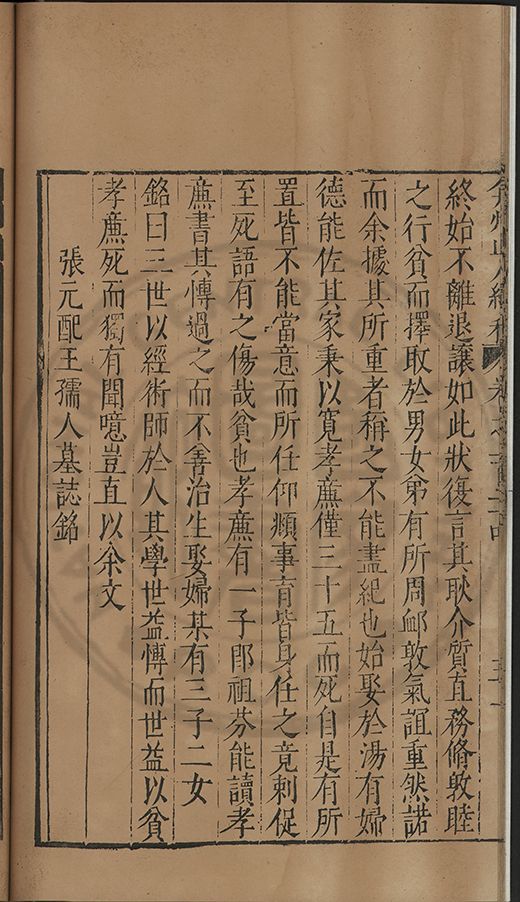 弇州山人續稿
終始不離退讓如此狀復言其耿介質直務脩敦睦
之行貧而擇取於男女弟有所周卹敦氣誼重然諾
而余據其所重者稱之不能盡紀也始娶於湯有婦
德能佐其家秉以寬孝廉僅三十五而死自是有所
置皆不能當意而所任仰頫事育皆身任之竟刺促
至死語有之傷哉貧也孝廉有一子郎祖芬能讀孝
廉書其慱過之而不善治生娶婦某有三子二女
銘曰三世以經術師於人其學世益慱而世益以貧
孝廉死而獨有聞噫豈直以余文
張元配王孺人墓誌銘